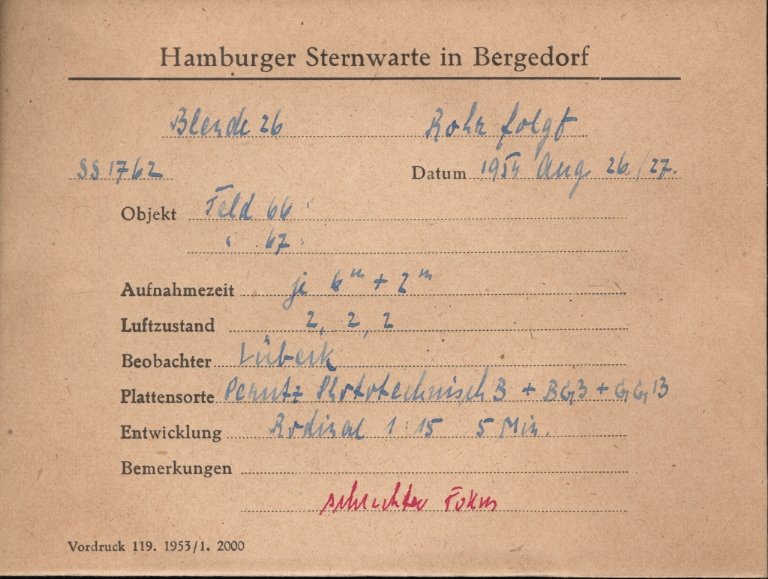 Hamburger Sternwarte in Bergedorf
Blende 26 Rohr folgt
SS 1762 Datum 1954 Aug 26/27.
Objekt Feld 66
" 67
Aufnahmezeit je 6ᵐ + 2ᵐ
Luftzustand 2, 2, 2
Beobachter Lübeck
Plattensorte Perutz Phototechnisch B + BG3 + GG13
Entwicklung Rodinal 1:15 5 Min.
Bemerkungen
schlechter Fokus
Vordruck 119. 1953/1. 2000